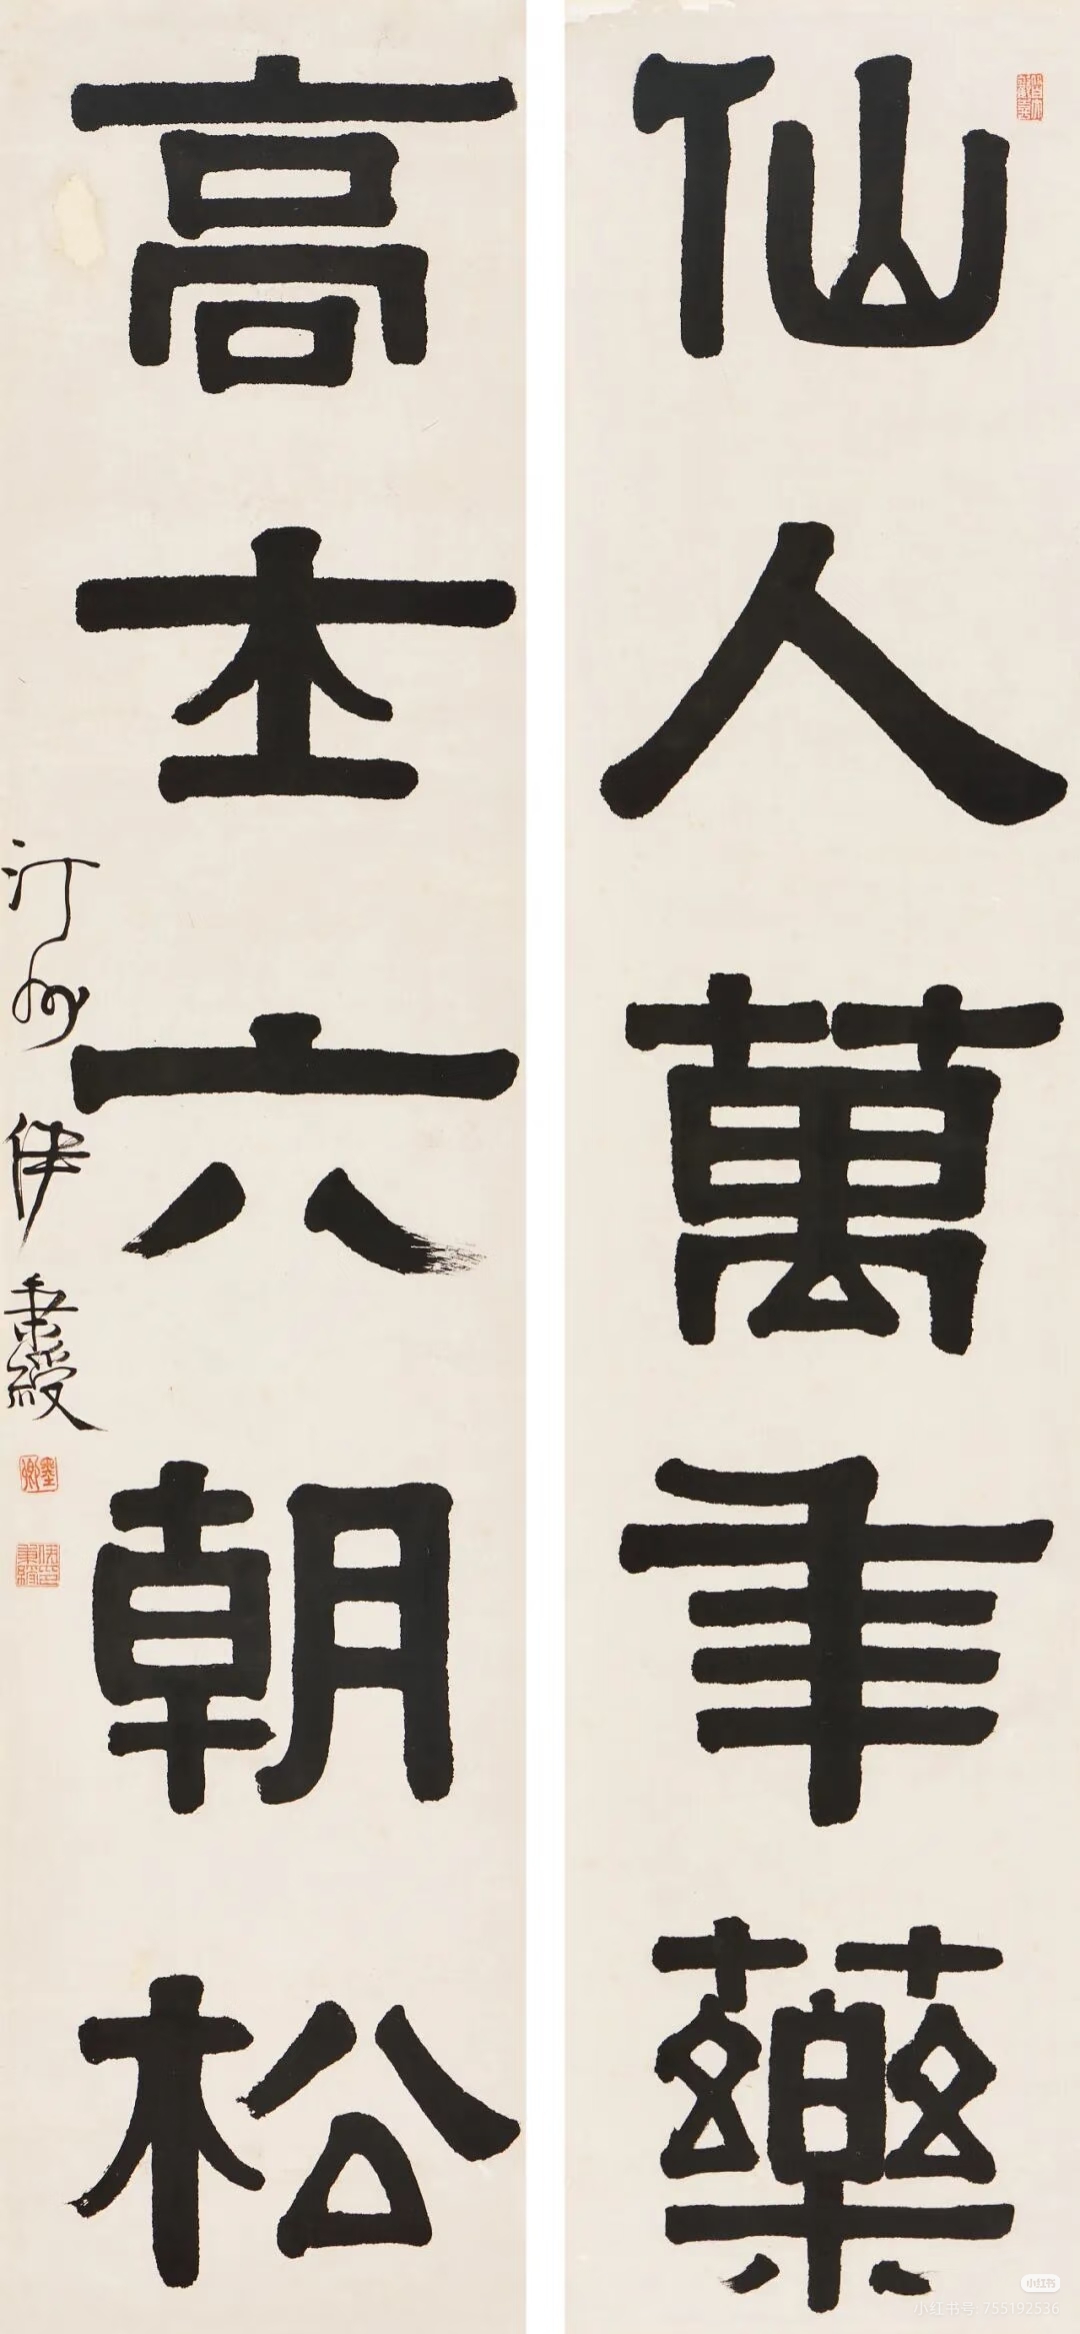 仙人萬年藥
高士六朝松
汀州伊秉綬
墨卿
伊秉綬印
小红书
小红书号:755192536